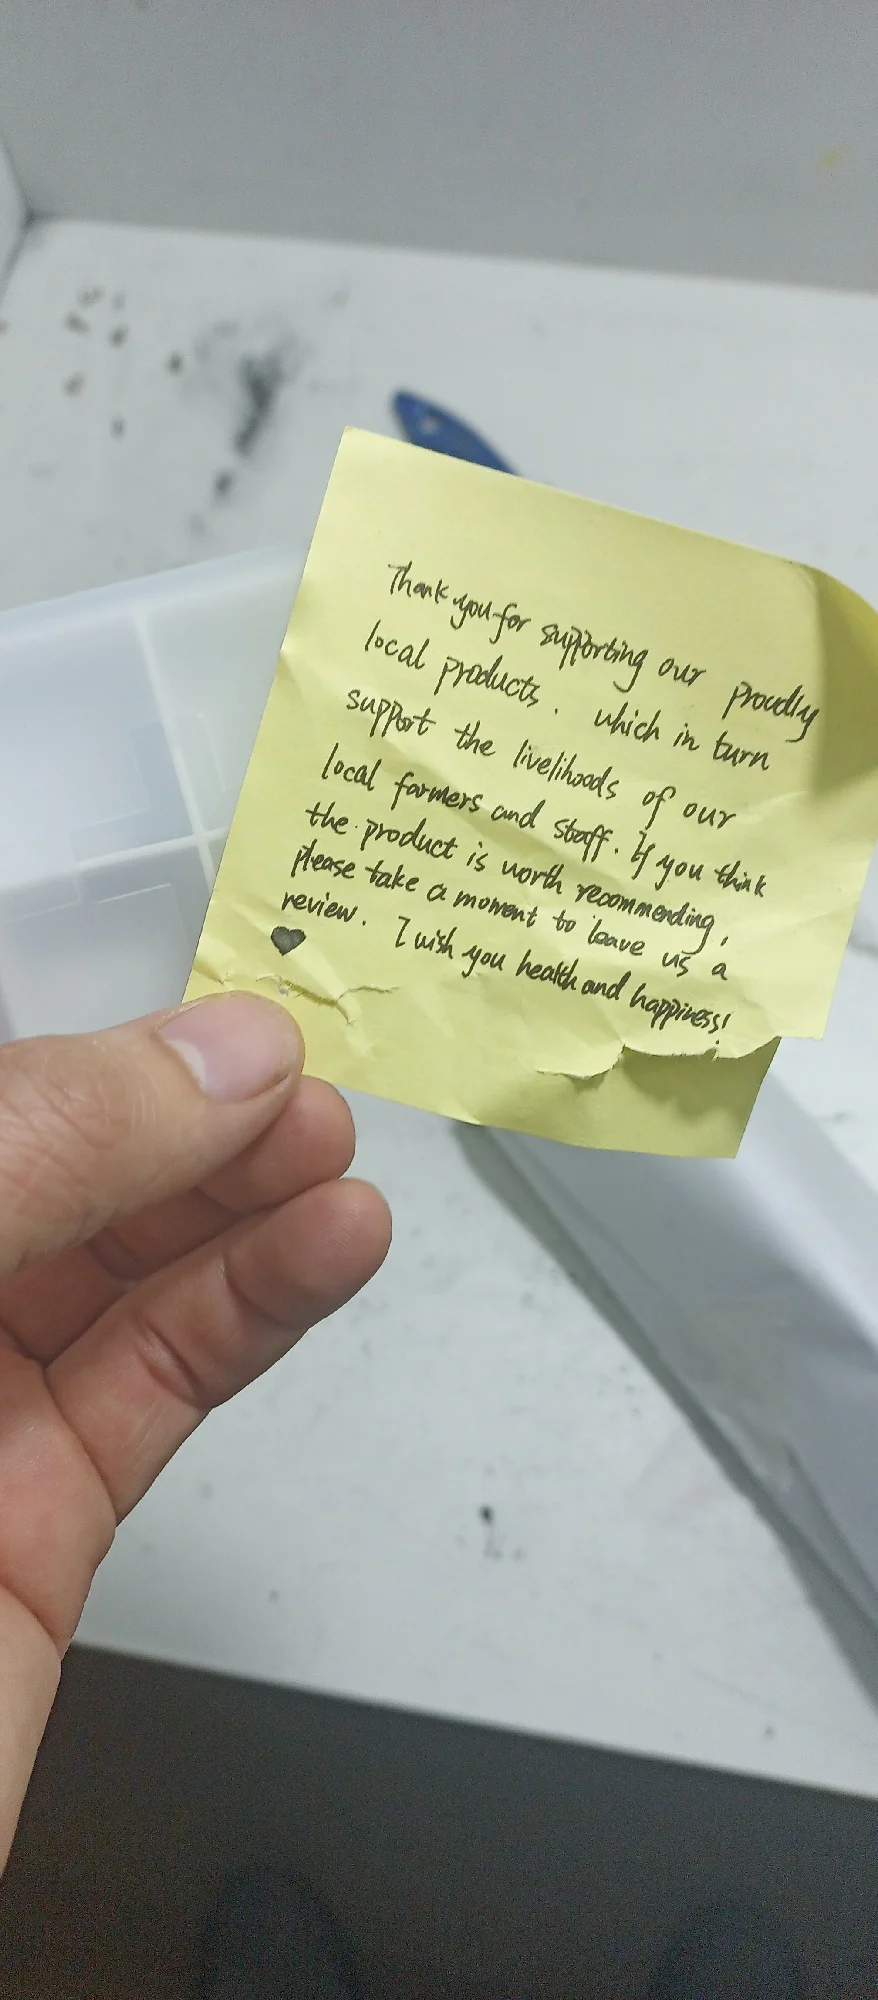 Thank you for supporting our proudly
local products. which in turn
support the livelihoods of our
local farmers and staff. If you think
the product is worth recommending,
please take a moment to leave us a
review. I wish you health and happiness!
♥